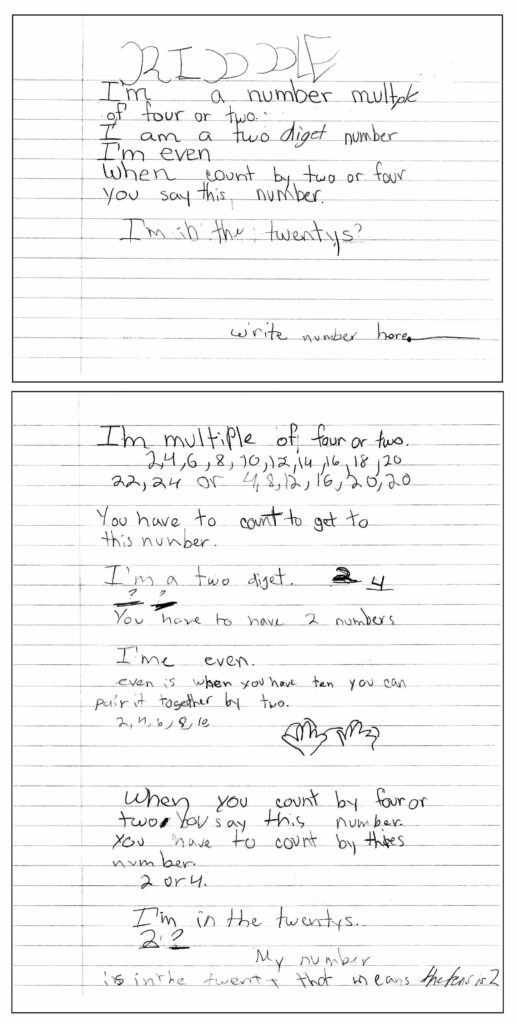 RIDDDLE
I'm a number multple
of four or two.
I am a two diget number
I'm even
When count by two or four
you say this number.
I'm in the twentys?
write number here.
I'm multiple of four or two.
2,4,6,8,10,12,14,16,18,20
22,24 or 4,8,12,16,20,20
You have to count to get to
this number.
I'm a two diget. 2 4
? ?
You have to have 2 numbers
I'me even.
even is when you have ten you can
pair it together by two.
2,4,6,8,10
When you count by four or
two you say this number.
You have to count by thes
number.
2 or 4.
I'm in the twentys.
2 ?
My number
is in the twenty that means the tens is 2